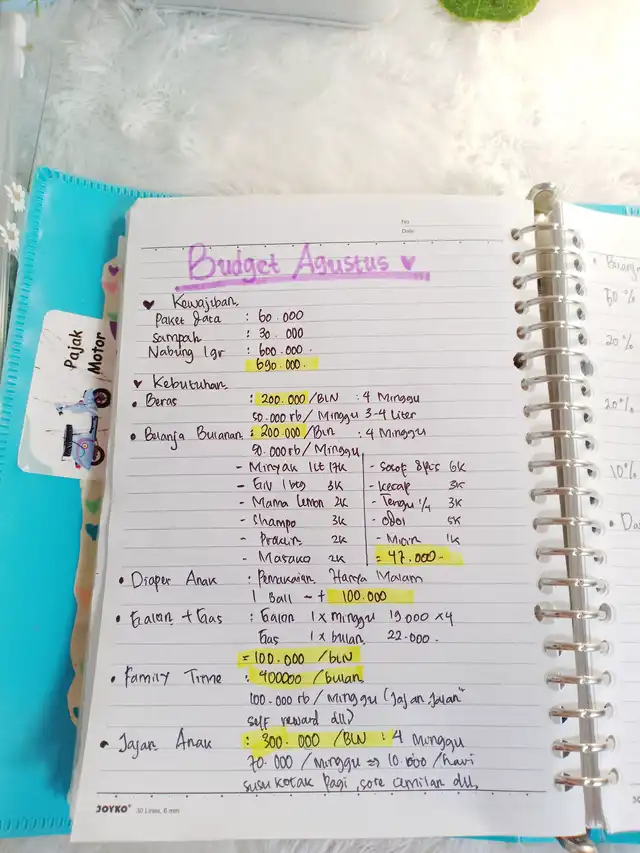 No
Date
Budget Agustus
Kewajiban
Paket data : 60.000
Sampah : 30.000
Nabung 1gr : 600.000.
690.000.
Kebutuhan
• Beras : 200.000/BLN : 4 Minggu
50.000rb/Minggu 3-4 liter
• Belanja Bulanan : 200.000/Bln : 4 Minggu
50.000rb/Minggu
- Minyak 1lt 17K
- Giv 1 btg 3K
- Mama Lemon 2K
- Shampo 3K
- Proclin 2K
- Masako 2K
- Sosof 8pcs 6K
- Kecap 3K
- Terigu 1/4 3K
- Odol 5K
- Micin 1K
= 47.000.-
• Diaper Anak : Pemakaian Hanya Malam
1 Ball - + 100.000
• Galon + Gas : Galon 1x minggu 19.000 x4
Gas 1x bulan 22.000.
= 100.000 /bLN
• Family Time : 400000 /bulan
100.000 rb / minggu (Jajan, Jalan"
self reward dll)
• Jajan Anak : 300.000 /BLN : 4 Minggu
70.000 / Minggu => 10.000 /hari
susu kotak Pagi, sore cemilan dll,
JOYKO 30 Lines, 6 mm
Pajak
Motor
50%
20%
20%
10%